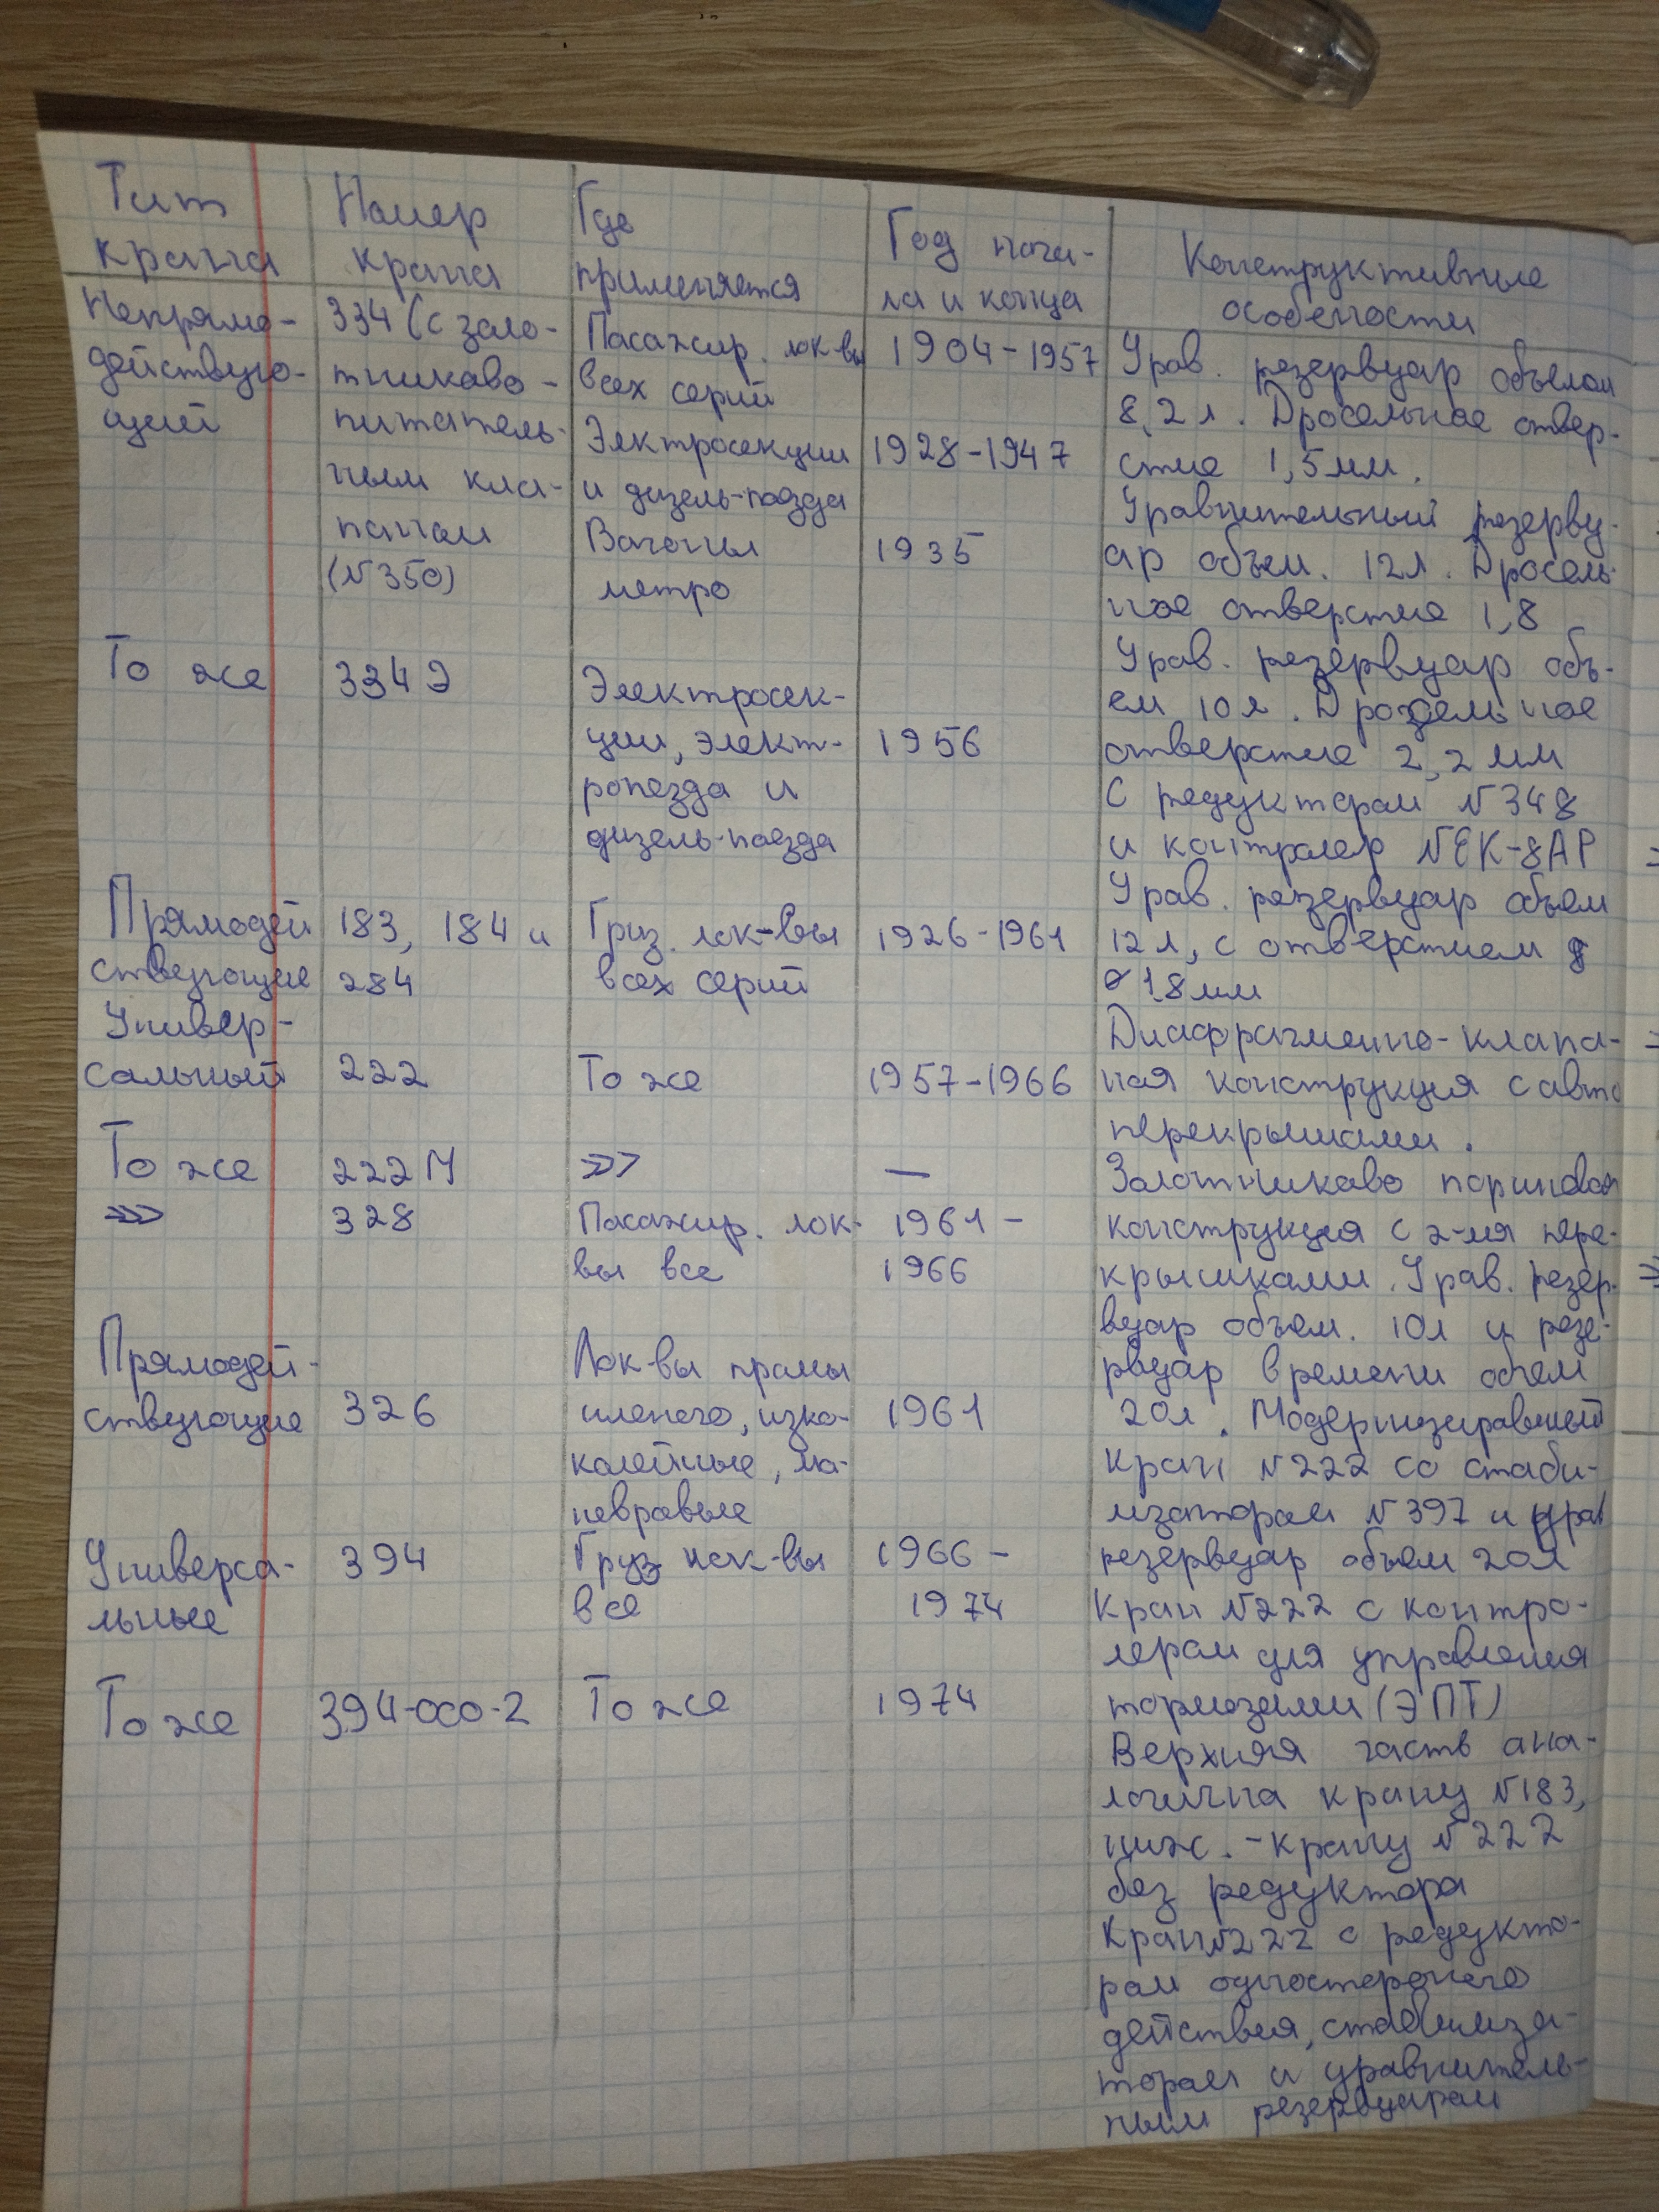 Тип
крана
Номер
крана
Где
применяется
Год нача-
ла и конца
Конструктивные
особености
Непрямо-
действую-
щий
334 (с золо-
тникаво-
питатель-
ным кла-
паном
(№350)
Пасажир. лок-вы
всех серий
Элктросекции
и дизель-поезда
Вагоны
метро
1904-1957
1928-1947
1935
Урав. резервуар объемом
8,2 л. Дросельное отвер-
стие 1,5мм.
Уравнительный резерву-
ар объем. 12л. Дросель-
ное отверстие 1,8
То же
334 Э
Электросек-
ции, элект-
ропезда и
дизель-поезда
1956
Урав. резервуар объ-
ем 10 л. Дроздельное
отверстие 2,2 мм
С редуктором №348
и контролер №ЕК-8АР
Прямодей
ствующие
183, 184 и
284
Груз. лок-вы
всех серий
1926-1961
Урав. резервуар объем
12 л, с отверстием
⌀ 1,8 мм
Универ-
сальный
222
То же
1957-1966
Диафрагменно-клапа-
ная конструкция с авто
перекрышами.
То же
222М
>>>
—
Золотниково поршновая
>>>
328
Пасажир. лок-
вы все
1961 -
1966
конструкция с 2-мя пере-
крышками. Урав. резер-
вуар объем. 10л и резе-
рвуар времени объем
20л. Модернизированый
кран №222 со стаби-
лизатором №397 и урав
резервуар объем 20л
Прямодей-
ствующие
326
Лок-вы промы
шленого, узко-
колейные, ма-
невровые
1961
Универса-
льные
394
Груз лок-вы
все
1966 -
1974
Кран №222 с контро-
лером для управления
тормозами (ЭПТ)
То же
394-000-2
То же
1974
Верхняя часть ана-
логична крану №183,
ниж. - крану №222
без редуктора
Кран №222 с редукто-
ром одностороного
действия, стабилиза-
тором и уравнитель-
ным резервуаром